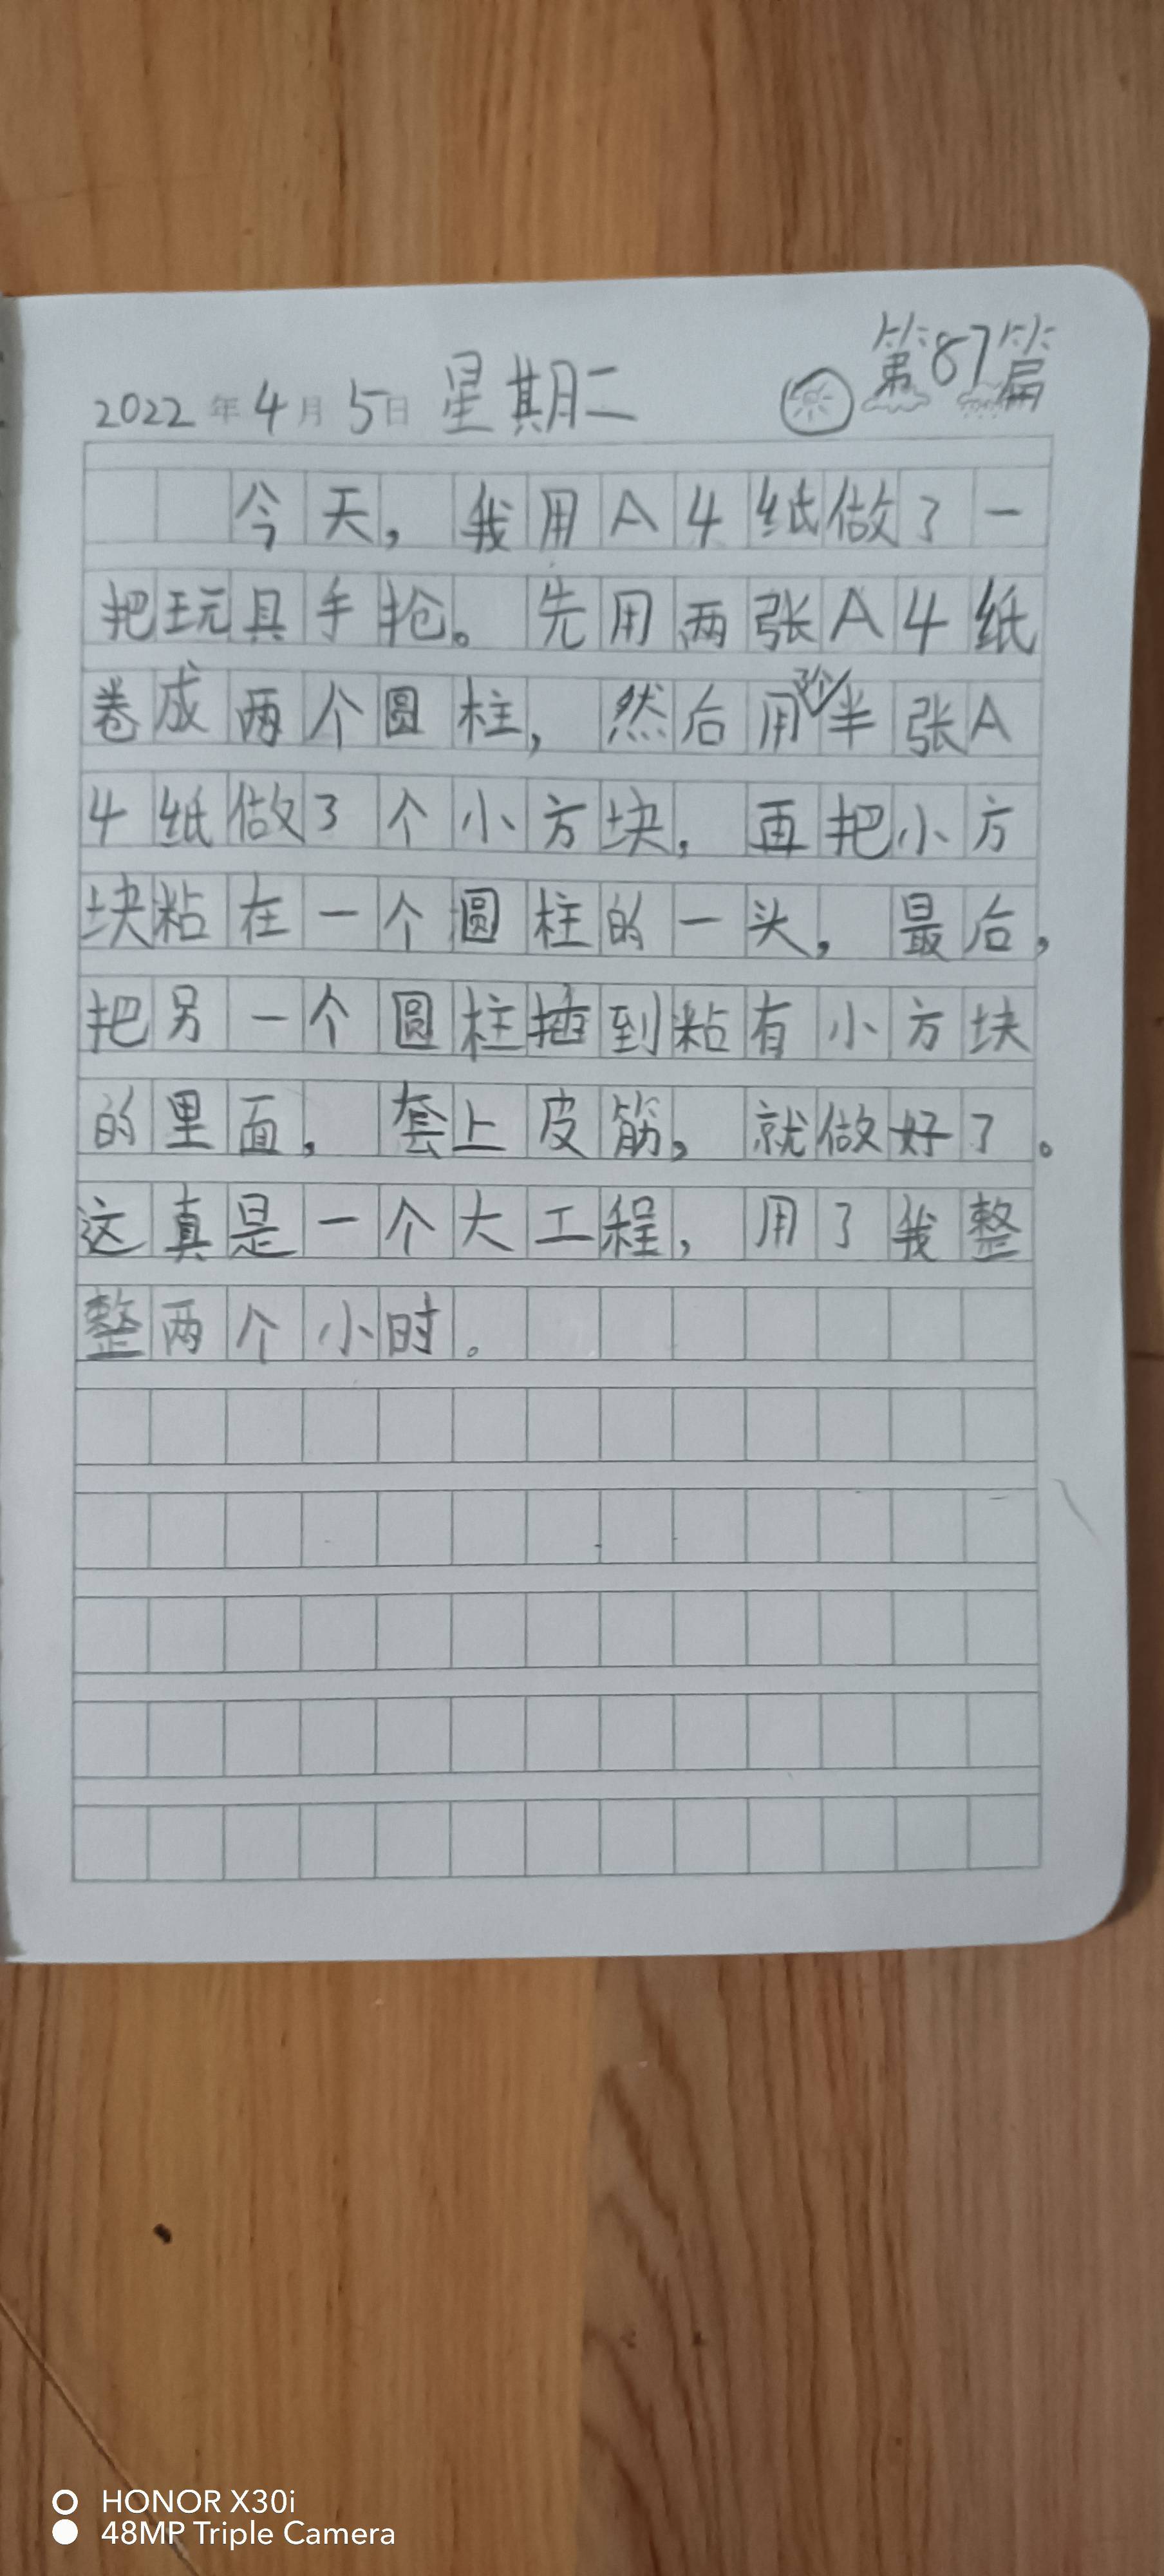 第87篇
2022年4月5日 星期二
今天，我用A4纸做了一
把玩具手抢。先用两张A4纸
卷成两个圆柱，然后用半张A
4纸做了个小方块，再把小方
块粘在一个圆柱的一头，最后，
把另一个圆柱插到粘有小方块
的里面，套上皮筋，就做好了。
这真是一个大工程，用了我整
整两个小时。
HONOR X30i
48MP Triple Camera